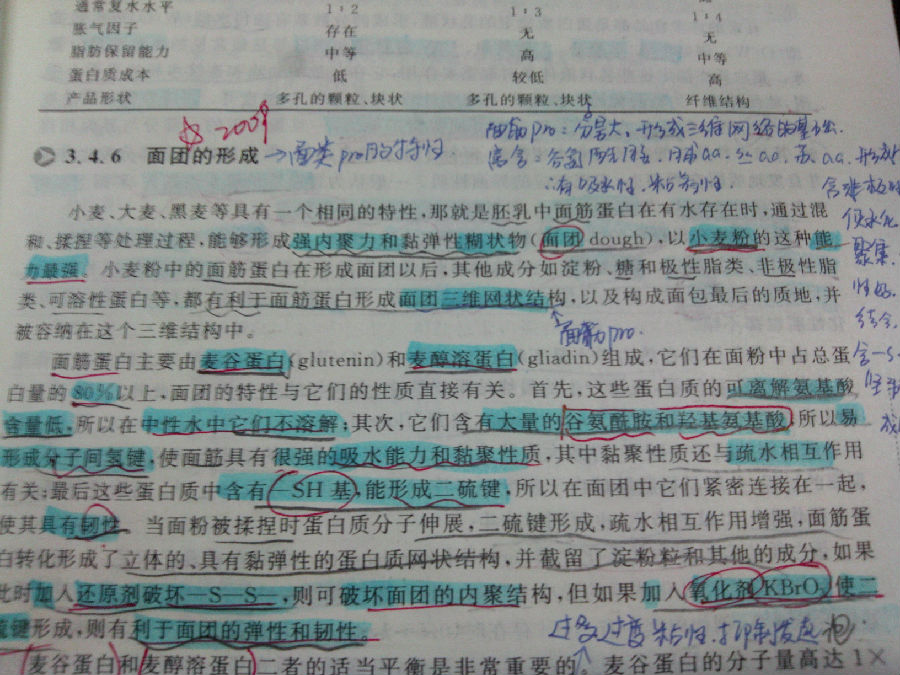 通常复水水平 1:2 1:3 1:4
胀气因子 存在 无 无
脂肪保留能力 中等 高 中等
蛋白质成本 低 较低 高
产品形状 多孔的颗粒、块状 多孔的颗粒、块状 纤维结构
2009
面筋pro:分子量大,形成三维网络的基础.
3.4.6 面团的形成 →面类pro的特性
有吸水性,粘弹性.
小麦、大麦、黑麦等具有一个相同的特性,那就是胚乳中面筋蛋白在有水存在时,通过混
和、揉捏等处理过程,能够形成强内聚力和黏弹性糊状物(面团 dough),以小麦粉的这种能
力最强。小麦粉中的面筋蛋白在形成面团以后,其他成分如淀粉、糖和极性脂类、非极性脂
类、可溶性蛋白等,都有利于面筋蛋白形成面团三维网状结构,以及构成面包最后的质地,并
被容纳在这个三维结构中。
面筋pro.
面筋蛋白主要由麦谷蛋白(glutenin)和麦醇溶蛋白(gliadin)组成,它们在面粉中占总蛋
白量的80%以上,面团的特性与它们的性质直接有关。首先,这些蛋白质的可离解氨基酸
含量低,所以在中性水中它们不溶解;其次,它们含有大量的谷氨酰胺和羟基氨基酸,所以易
形成分子间氢键,使面筋具有很强的吸水能力和黏聚性质,其中黏聚性质还与疏水相互作用
有关;最后这些蛋白质中含有—SH基,能形成二硫键,所以在面团中它们紧密连接在一起,
使其具有韧性。当面粉被揉捏时蛋白质分子伸展,二硫键形成,疏水相互作用增强,面筋蛋
白转化形成了立体的、具有黏弹性的蛋白质网状结构,并截留了淀粉粒和其他的成分,如果
此时加入还原剂破坏—S—S—,则可破坏面团的内聚结构,但如果加入氧化剂KBrO₃使二
硫键形成,则有利于面团的弹性和韧性。
麦谷蛋白和麦醇溶蛋白二者的适当平衡是非常重要的。麦谷蛋白的分子量高达1×